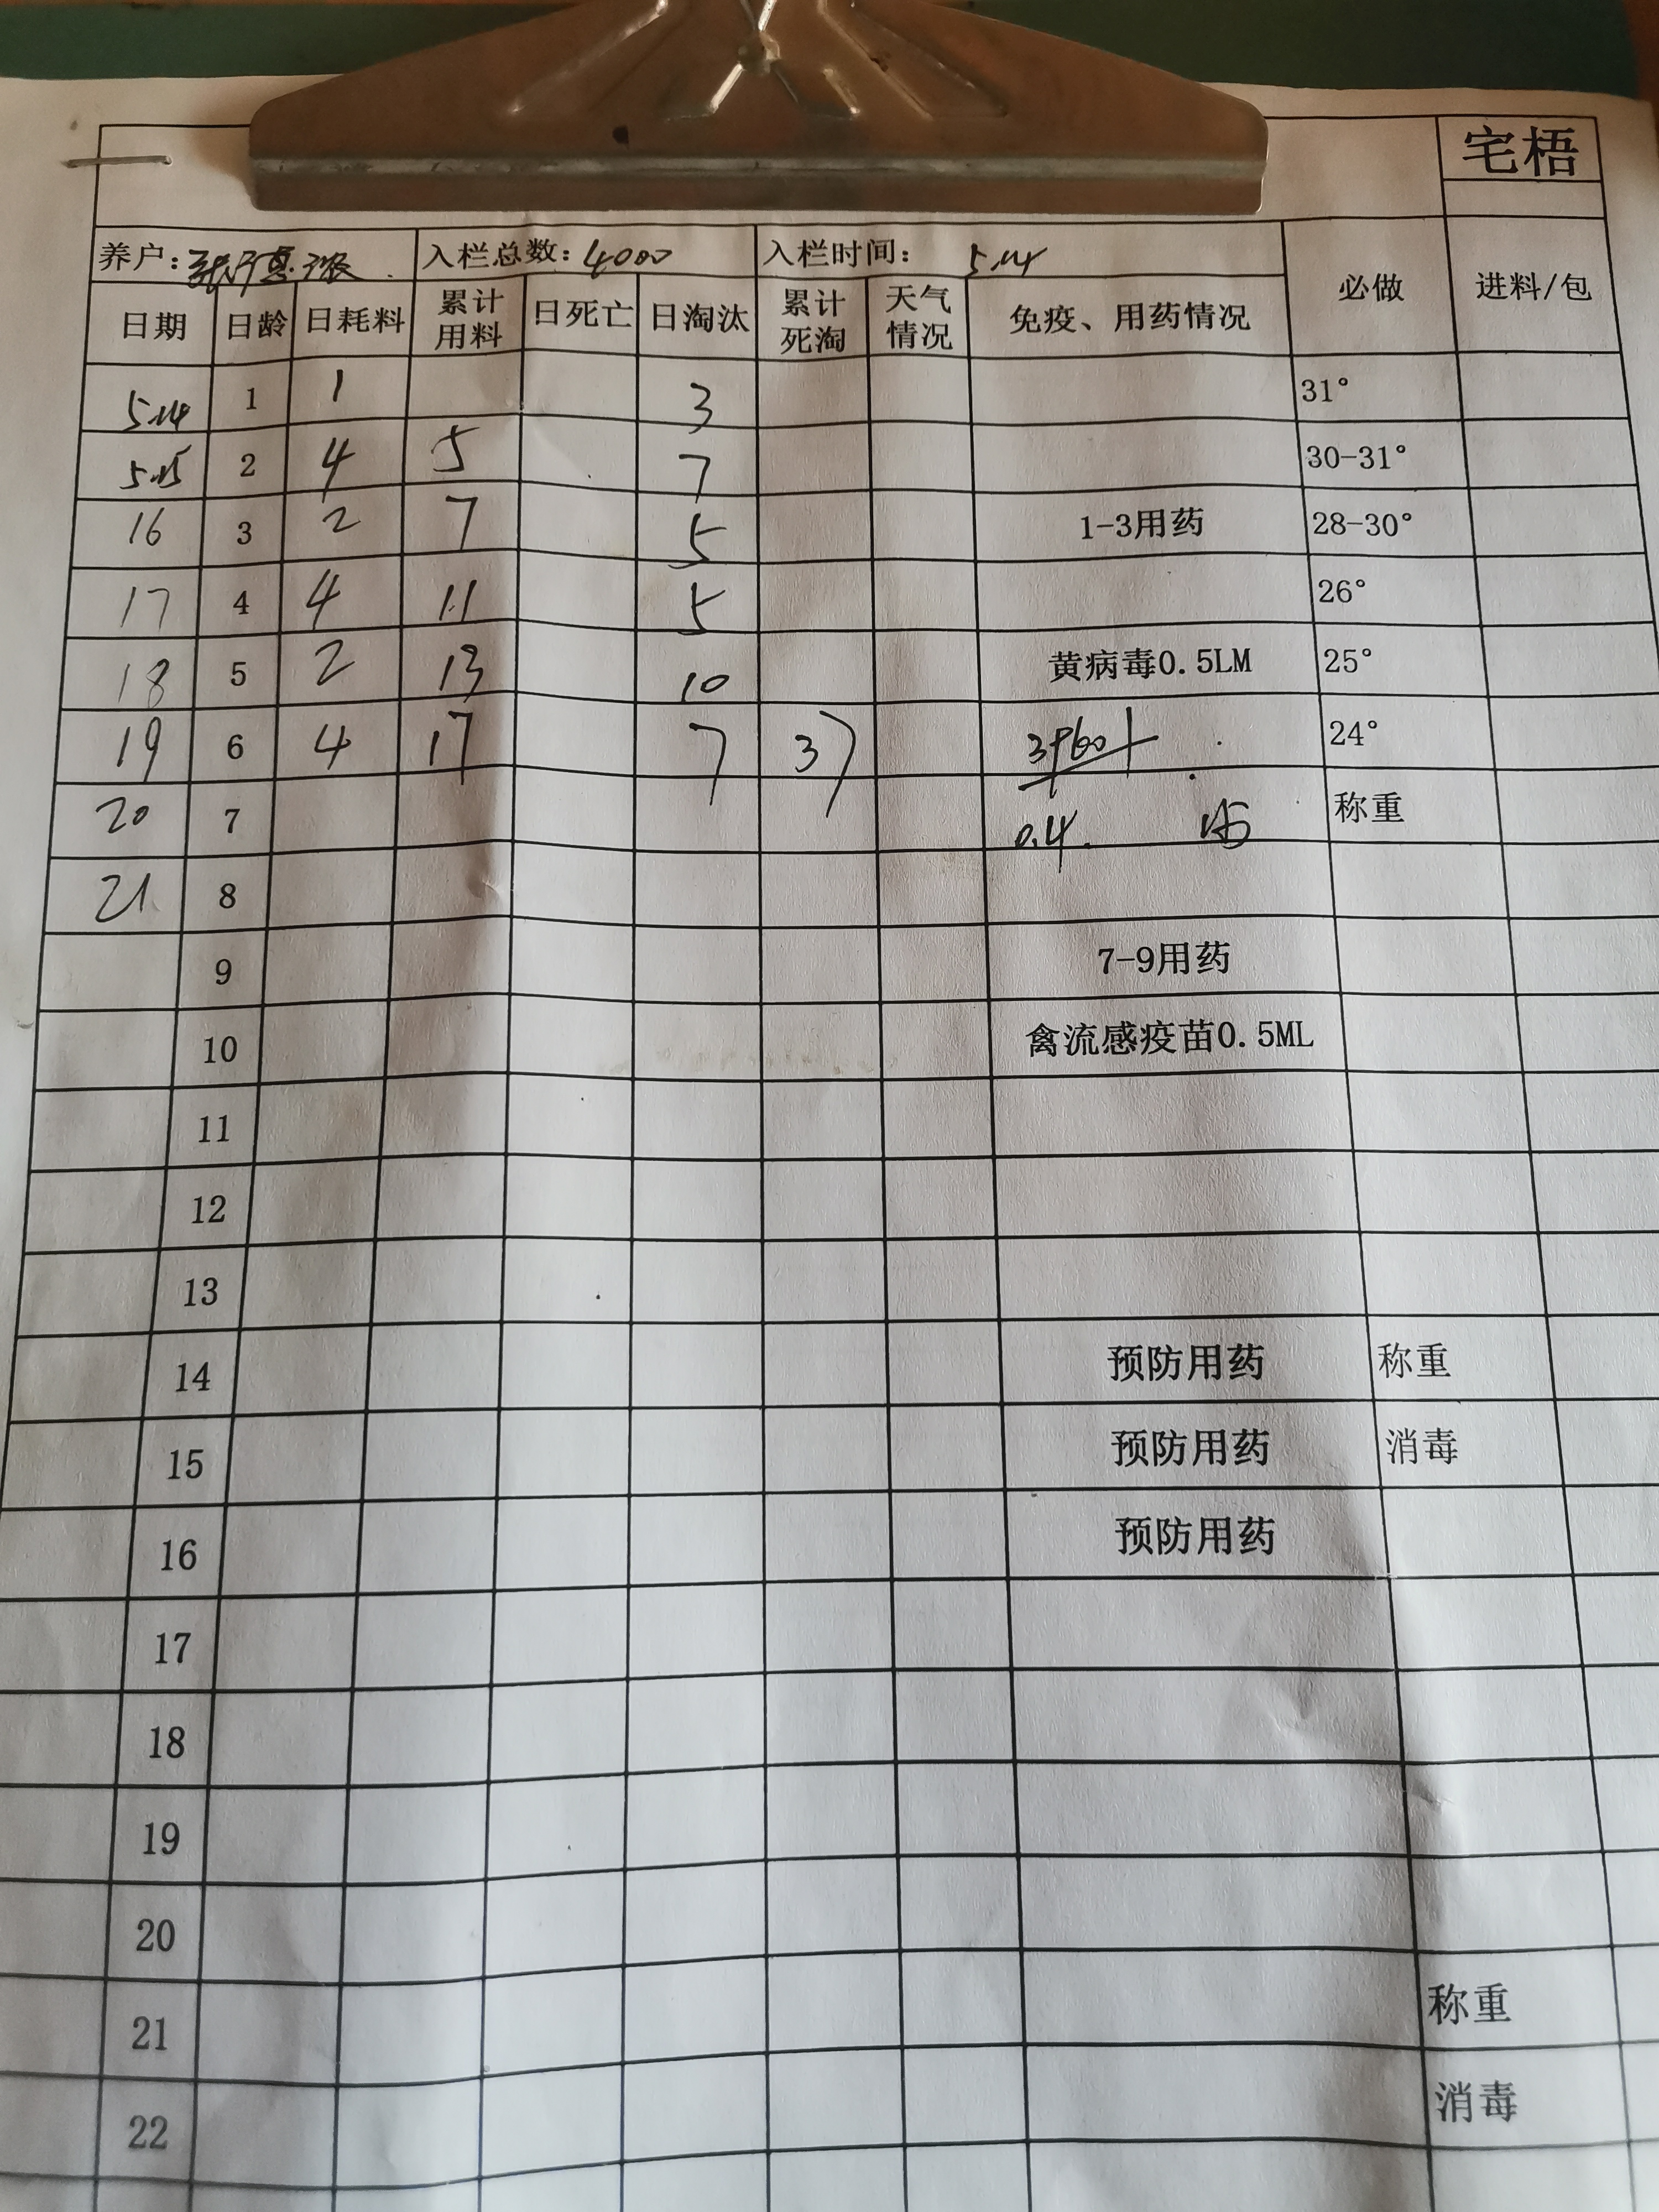 宅梧
养户: 入栏总数: 4000 入栏时间: 5.14
日期 日龄 日耗料 累计用料 日死亡 日淘汰 累计死淘 天气情况 免疫、用药情况 必做 进料/包
5.14 1 1 3 31°
5.15 2 4 5 7 30-31°
16 3 2 7 5 1-3用药 28-30°
17 4 4 11 5 26°
18 5 2 13 10 黄病毒0.5LM 25°
19 6 4 17 7 37 24°
20 7 0.4 称重
21 8
9 7-9用药
10 禽流感疫苗0.5ML
11
12
13
14 预防用药 称重
15 预防用药 消毒
16 预防用药
17
18
19
20
21 称重
22 消毒